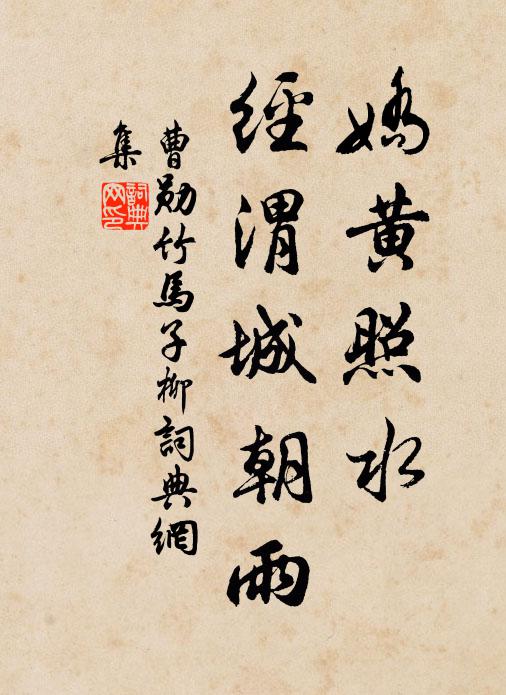 嬌黃照水
經渭城朝雨
曹勛竹馬子柳詞典網
集
詞典網印